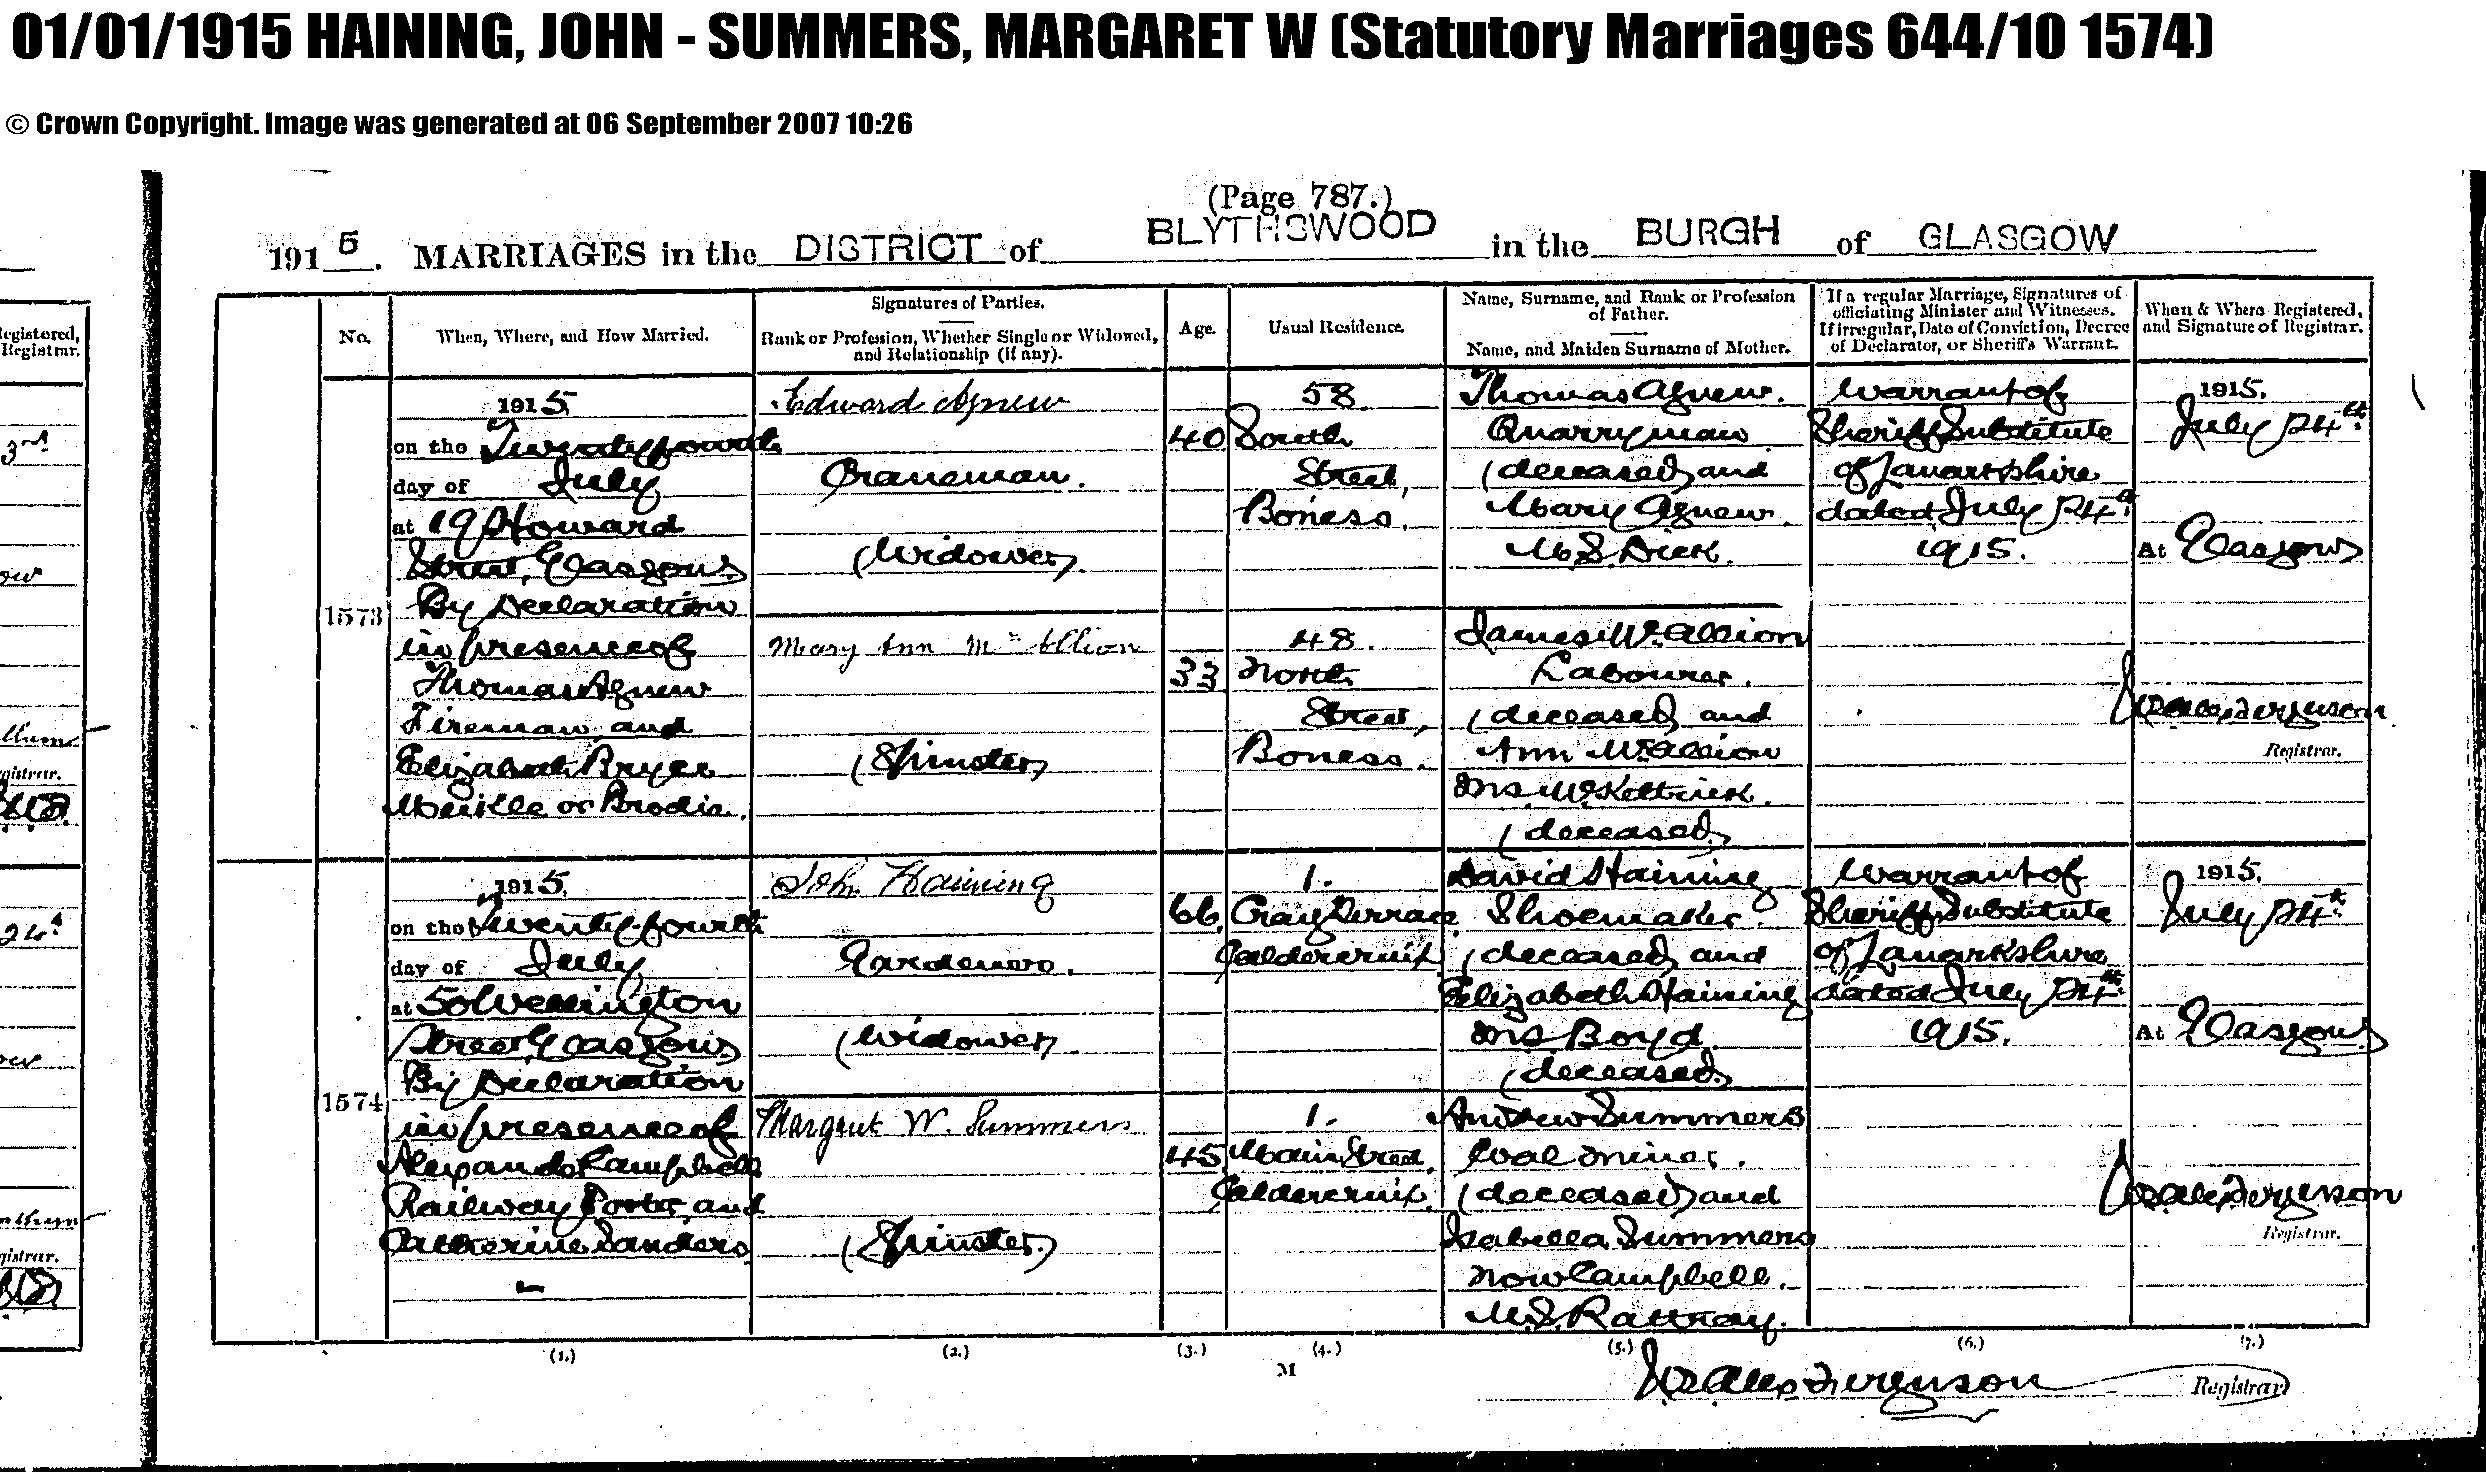 01/01/1915 HAINING, JOHN - SUMMERS, MARGARET W (Statutory Marriages 644/10 1574)
© Crown Copyright. Image was generated at 06 September 2007 10:26
(Page 787.)
1915. MARRIAGES in the DISTRICT of BLYTHSWOOD in the BURGH of GLASGOW
No.
When, Where, and How Married.
Signatures of Parties.
Rank or Profession, Whether Single or Widowed,
and Relationship (if any).
Age.
Usual Residence.
Name, Surname, and Rank or Profession
of Father.
Name, and Maiden Surname of Mother.
If a regular Marriage, Signatures of
officiating Minister and Witnesses.
If irregular, Date of Conviction, Decree
of Declarator, or Sheriff's Warrant.
When & Where Registered,
and Signature of Registrar.
1573
1915.
on the Twentyfourth
day of July
at 19 Howard
Street, Glasgow.
By Declaration
in presence of
Thomas Agnew
Fireman and
Elizabeth Bryer
Meikle or Brodie.
Edward Agnew
Craneman.
(Widower)
Mary Ann Mc Allion
(Spinster)
40
33
58
South
Street,
Boness.
48.
North
Street,
Boness.
Thomas Agnew.
Quarryman
(deceased) and
Mary Agnew.
M.S. Dick.
James McAllion
Labourer.
(deceased) and
Ann McAllion
M.S. McKettrick.
(deceased)
Warrant of
Sheriff Substitute
of Lanarkshire
dated July 24th
1915.
1915.
July 24th
At Glasgow
Registrar.
1574
1915.
on the Twenty-fourth
day of July
at 50 Wellington
Street, Glasgow
By Declaration
in presence of
Alexander Campbell
Railway Porter, and
Catherine Sanders
John Haining
Gardener.
(Widower)
Margaret W. Summers
(Spinster.)
66
45
1.
Craig Terrace
Caldercruix
1.
Main Street.
Caldercruix.
David Haining
Shoemaker.
(deceased) and
Elizabeth Haining
M.S. Boyd.
(deceased)
Andrew Summers
Coal Miner.
(deceased) and
Isabella Summers
now Campbell.
M.S. Rattray.
Warrant of
Sheriff Substitute
of Lanarkshire
dated July 24th
1915.
1915.
July 24th
At Glasgow
Registrar.
(1.) (2.) (3.) (4.) (5.) (6.) (7.)
M
Registrar